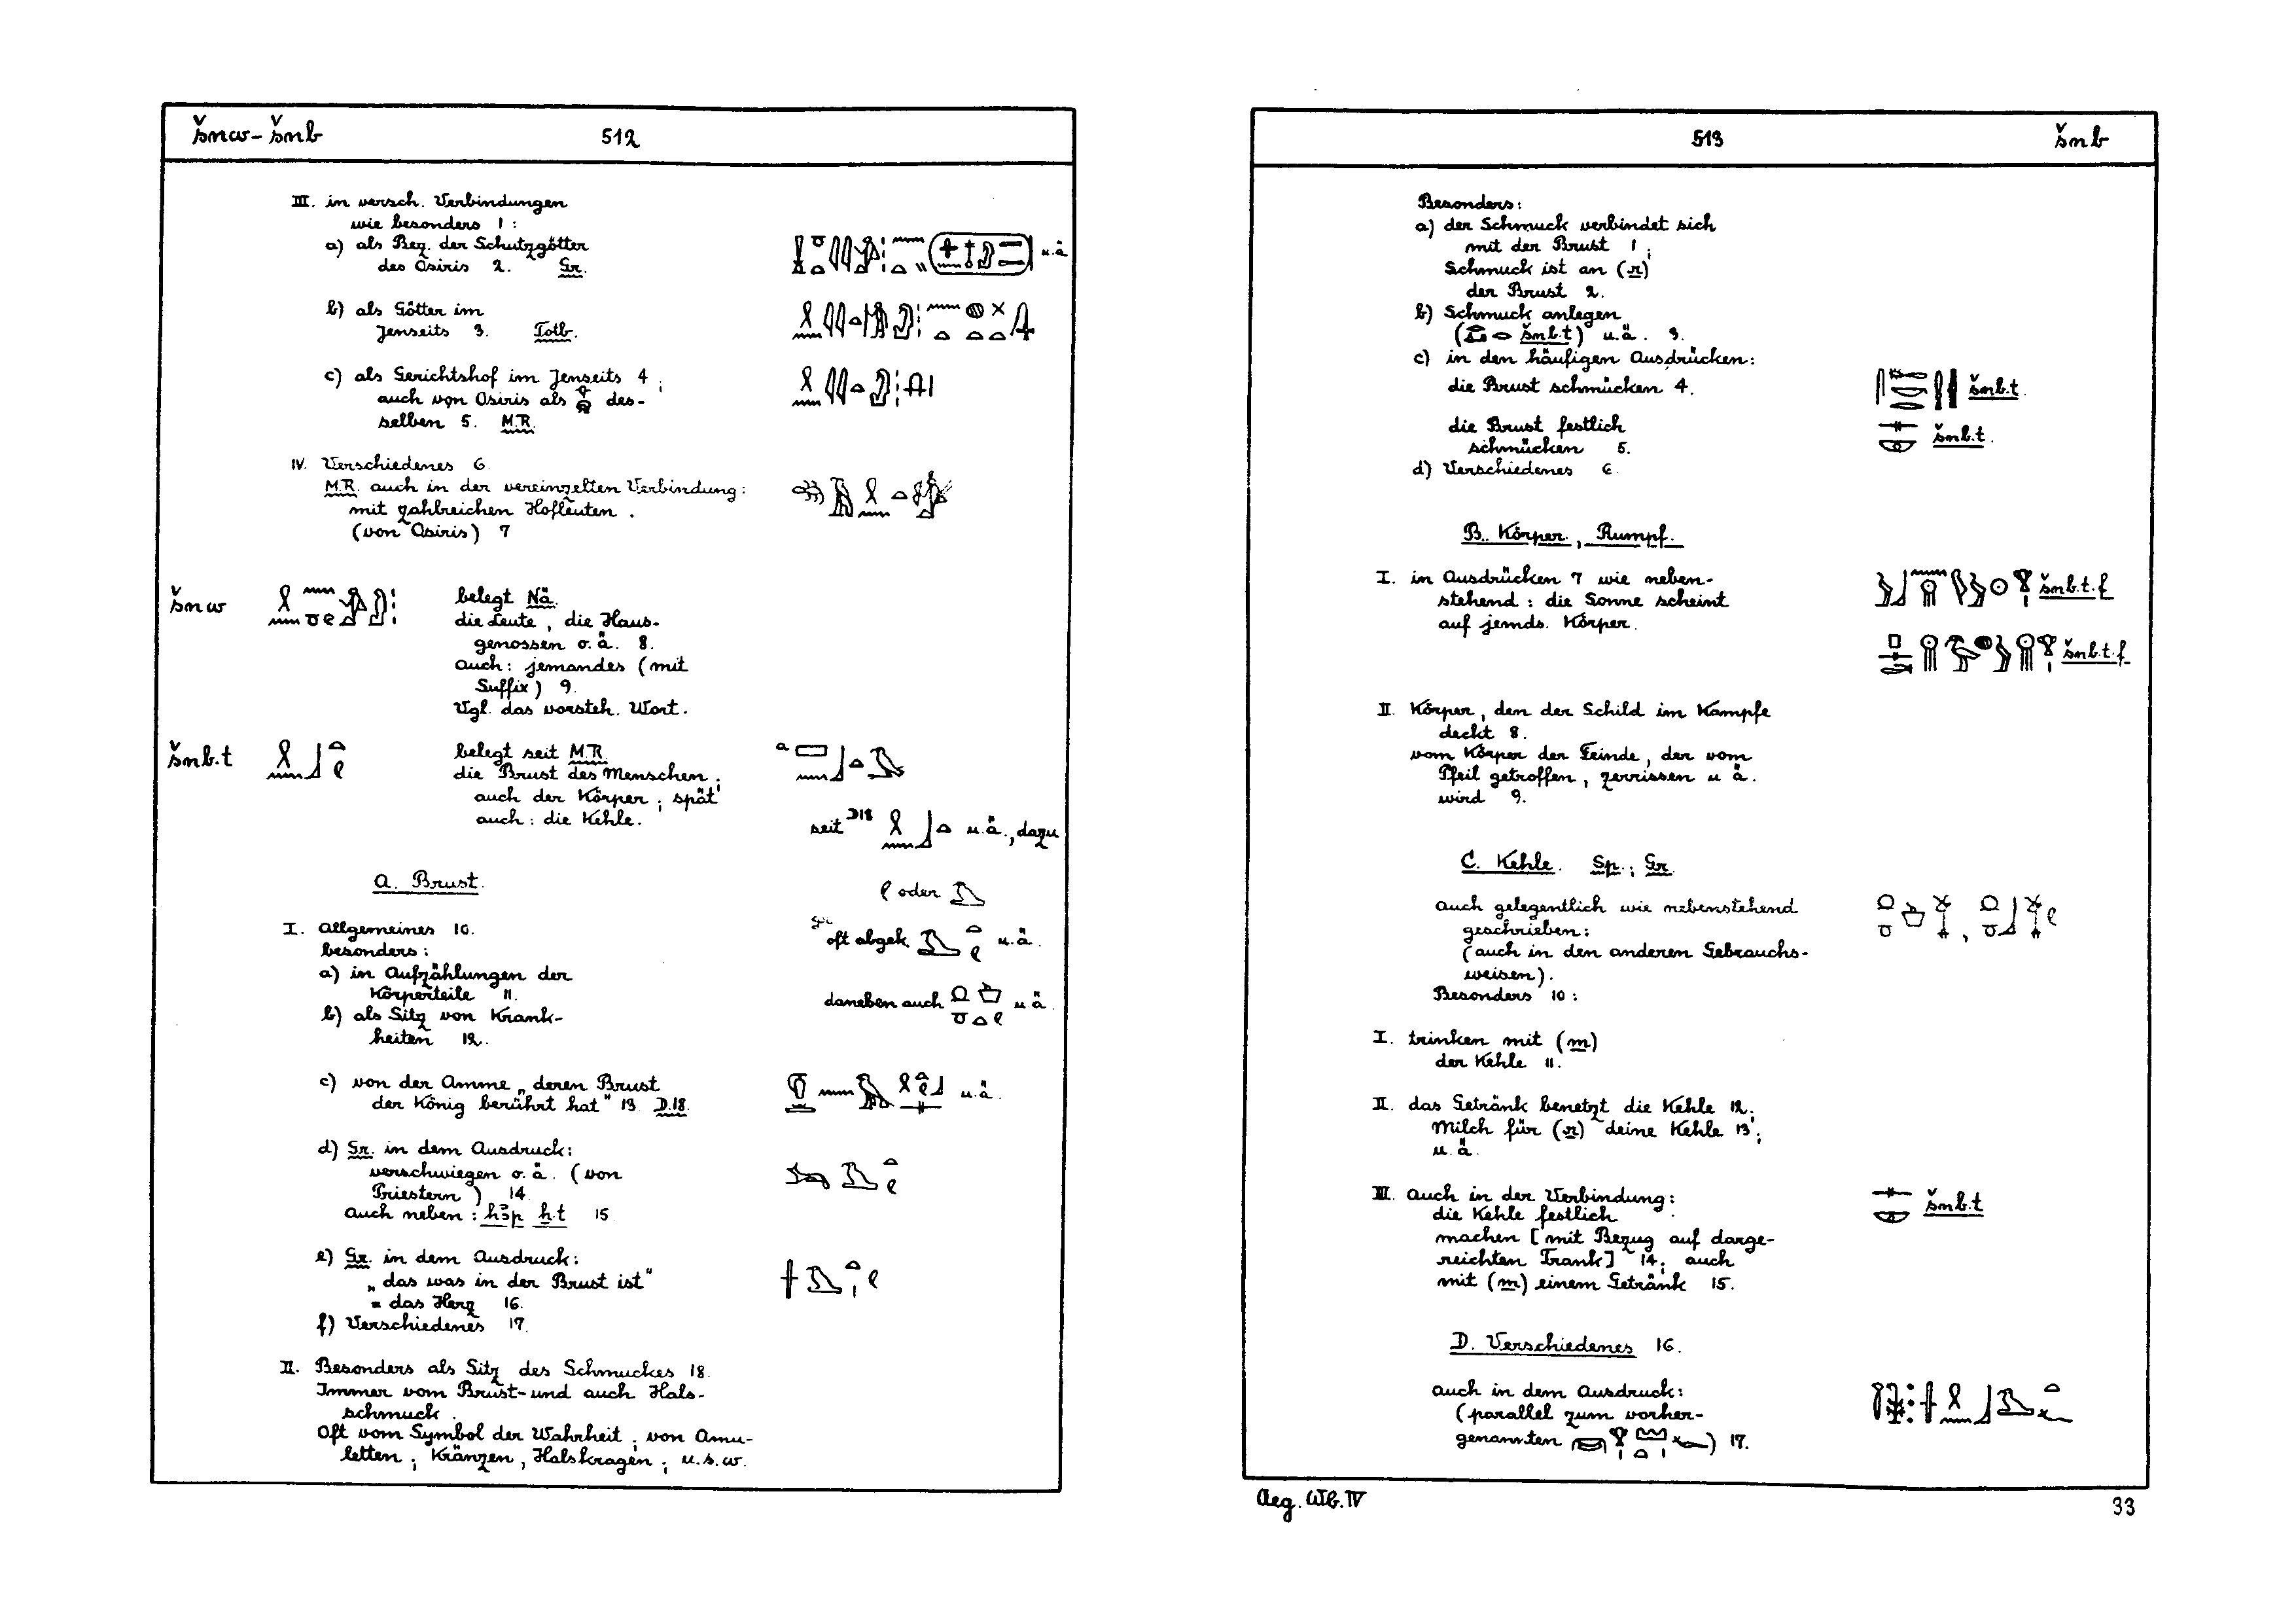 šnw - šnb 512
III. in versch. Verbindungen
wie besonders 1 :
a) als Bez. der Schutzgötter
des Osiris 2. Gr. u.ä
b) als Götter im
Jenseits 3. Totb.
c) als Gerichtshof im Jenseits 4 ;
auch von Osiris als des-
selben 5. M.R.
IV. Verschiedenes 6.
M.R. auch in der vereinzelten Verbindung:
mit zahlreichen Hofleuten.
(von Osiris) 7
šnw belegt Nä.
die Leute, die Haus-
genossen o.ä. 8.
auch: jemandes (mit
Suffix) 9.
Vgl. das vorsteh. Wort.
šnb.t belegt seit M.R. a
die Brust des Menschen;
auch der Körper; spät
auch: die Kehle.
seit D18 u.ä., dazu
A. Brust.
oder
I. Allgemeines 10.
oft abgek. u.ä.
besonders:
a) in Aufzählungen der
Körperteile 11.
daneben auch u.ä.
b) als Sitz von Krank-
heiten 12.
c) von der Amme „deren Brust
der König berührt hat" 13 D.18. u.ä.
d) Gr. in dem Ausdruck:
verschwiegen o.ä. (von
Priestern) 14.
auch neben: ḥꜣp ẖ.t 15
e) Gr. in dem Ausdruck:
„das was in der Brust ist"
= das Herz 16.
f) Verschiedenes 17.
II. Besonders als Sitz des Schmuckes 18.
Immer vom Brust- und auch Hals-
schmuck.
Oft vom Symbol der Wahrheit; von Amu-
letten; Kränzen, Halskragen; u.s.w.
513 šnb
Besonders:
a) der Schmuck verbindet sich
mit der Brust 1;
Schmuck ist an (r)
der Brust 2.
b) Schmuck anlegen
( šnb.t) u.ä. 3.
c) in den häufigen Ausdrücken:
die Brust schmücken 4. šnb.t.
die Brust festlich
schmücken 5. šnb.t.
d) Verschiedenes 6.
B. Körper, Rumpf.
I. in Ausdrücken 7 wie neben- šnb.t.f
stehend: die Sonne scheint
auf jemds. Körper.
šnb.t.f
II. Körper, den der Schild im Kampfe
deckt 8.
vom Körper der Feinde, der vom
Pfeil getroffen, zerrissen u.ä.
wird 9.
C. Kehle. Sp.; Gr.
auch gelegentlich wie nebenstehend
geschrieben:
(auch in den anderen Gebrauchs-
weisen).
Besonders 10:
I. trinken mit (m)
der Kehle 11.
II. das Getränk benetzt die Kehle 12;
Milch für (r) deine Kehle 13;
u.ä.
III. auch in der Verbindung: šnb.t
die Kehle festlich
machen [mit Bezug auf darge-
reichten Trank] 14; auch
mit (m) einem Getränk 15.
D. Verschiedenes 16.
auch in dem Ausdruck:
(parallel zum vorher-
genannten ) 17.
Aeg. Wb. IV 33